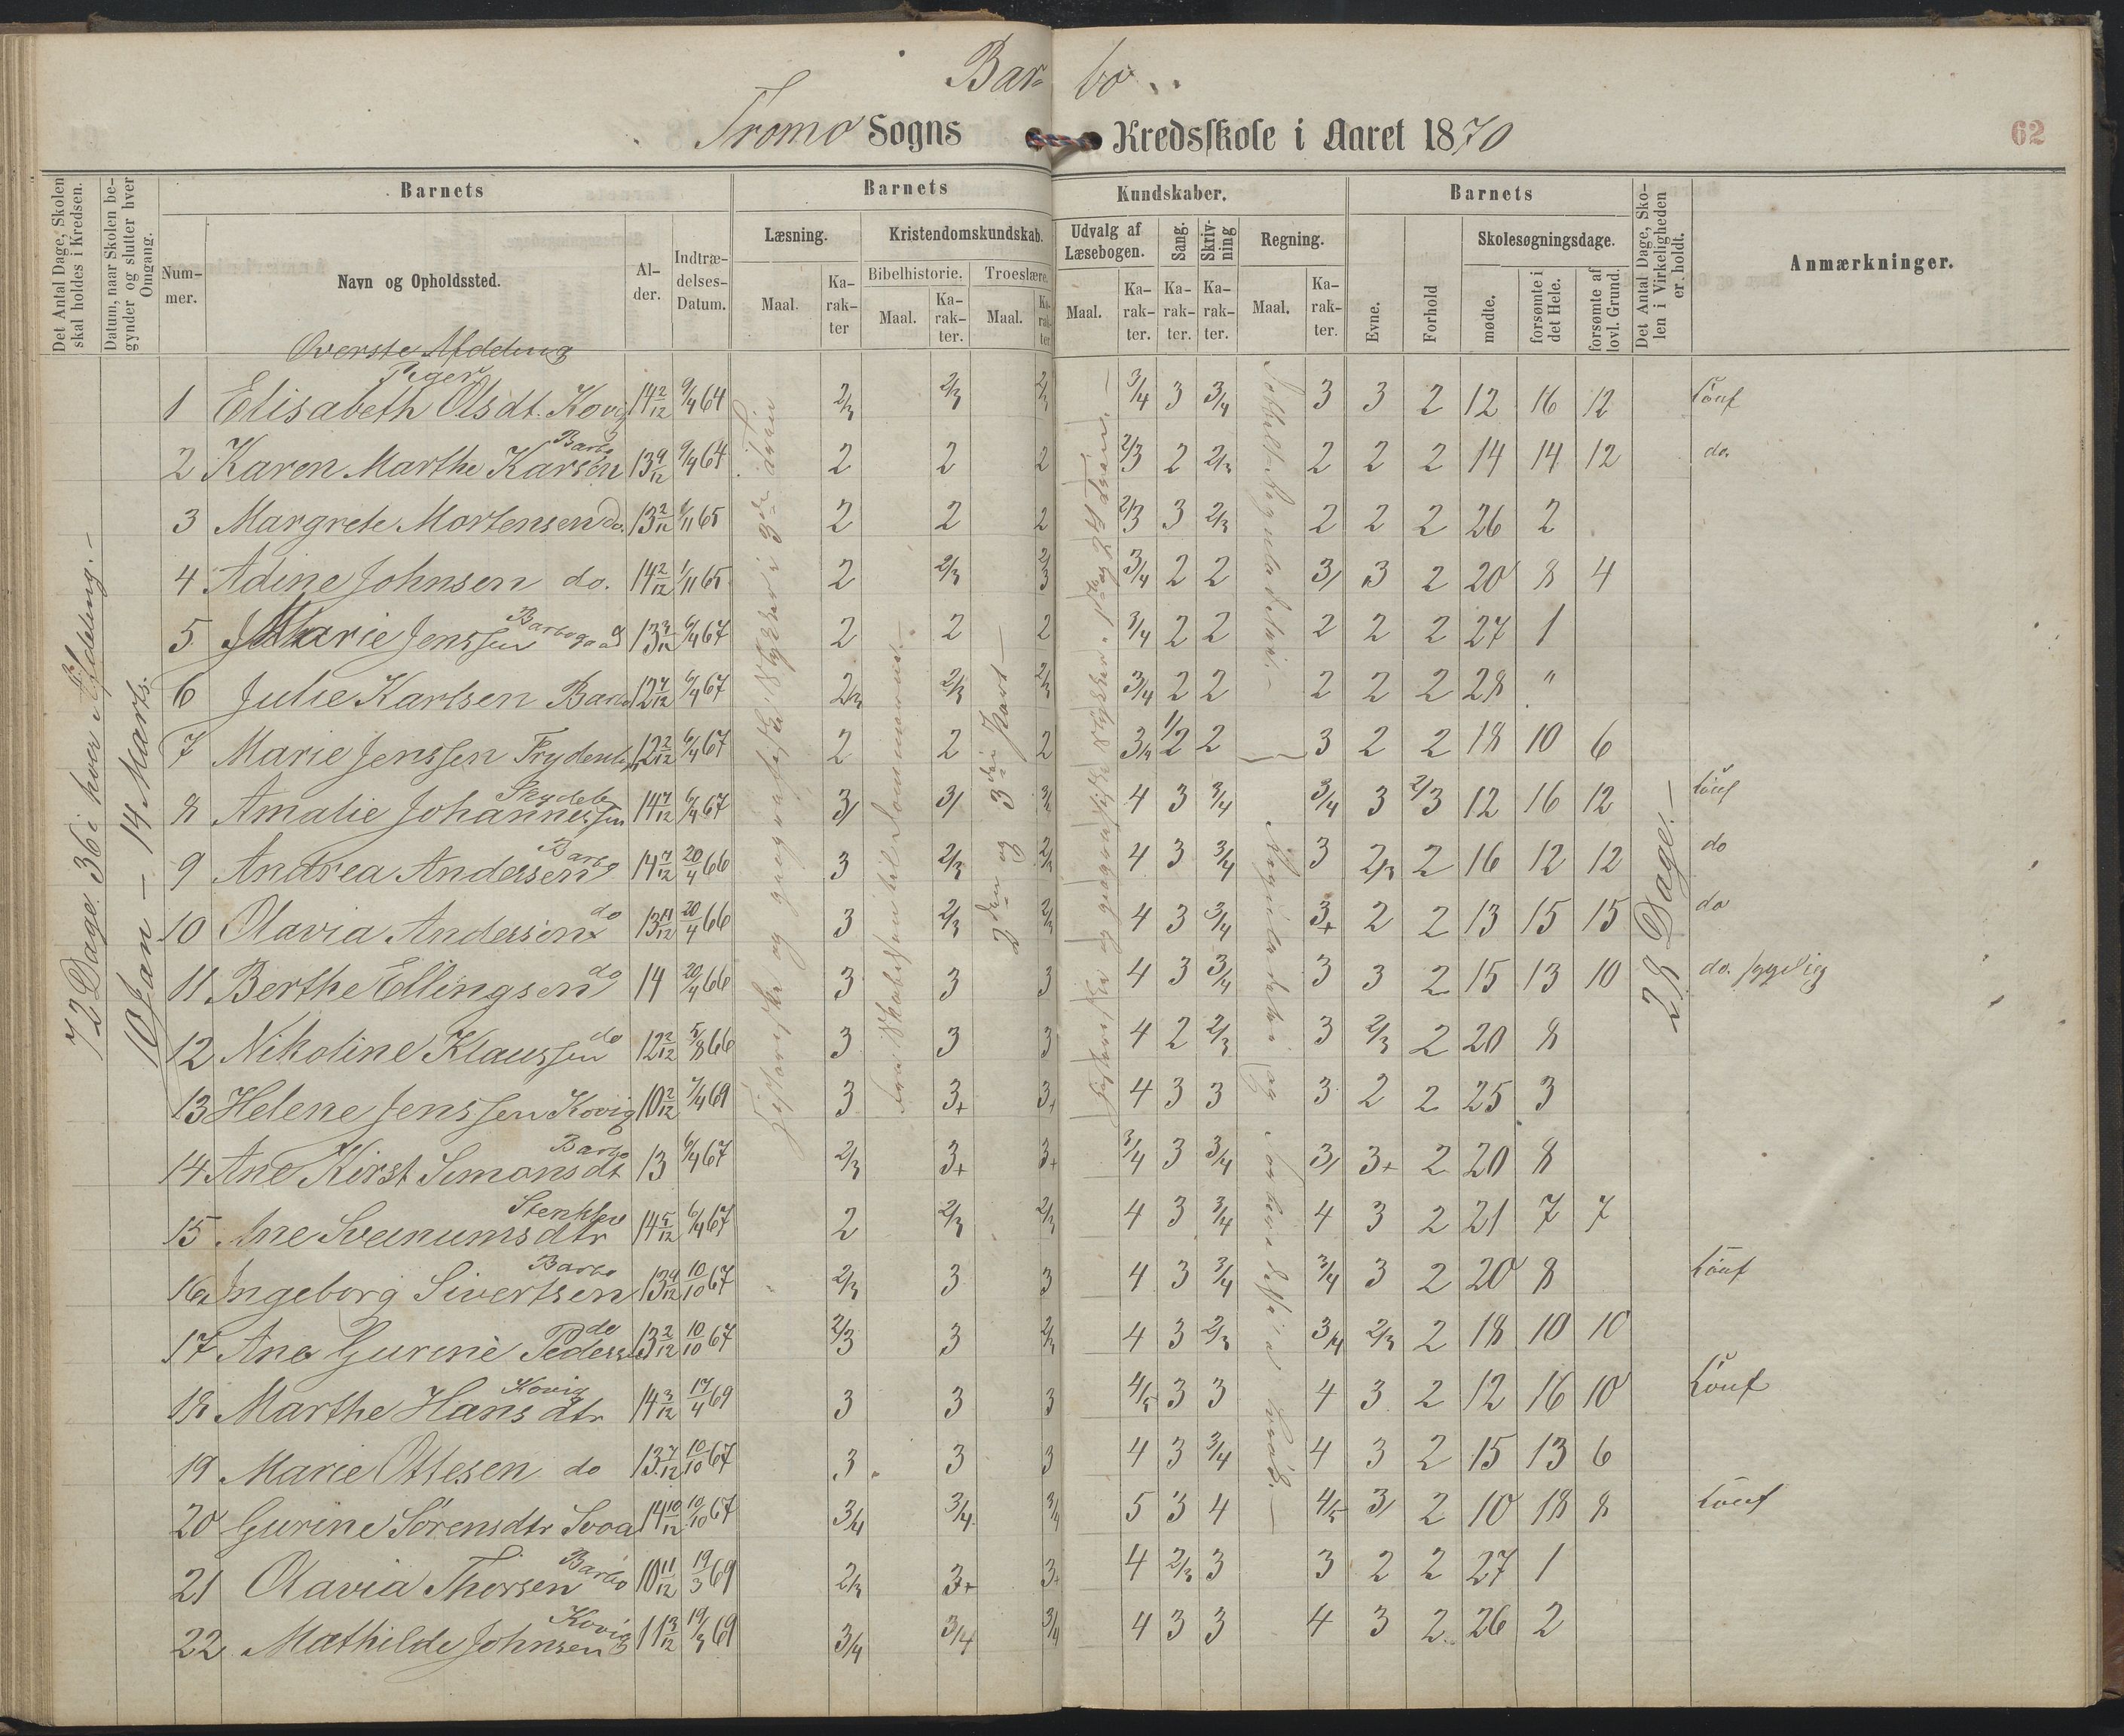 Bar- bo
Tromø Sogns Kredsskole i Aaret 1870
62
Det Antal Dage, Skolen skal holdes i Kredsen.
Datum, naar Skolen begynder og slutter hver Omgang.
Barnets
Nummer.
Navn og Opholdssted.
Alder.
Indtrædelses-Datum.
Barnets Kundskaber.
Læsning.
Maal.
Karakter
Kristendomskundskab.
Bibelhistorie.
Maal.
Karakter.
Troeslære.
Maal.
Karakter
Udvalg af Læsebogen.
Maal.
Karakter.
Sang.
Karakter.
Skrivning
Karakter.
Regning.
Maal.
Karakter.
Barnets
Evne.
Forhold
Skolesøgningsdage.
mødte.
forsømte i det Hele.
forsømte af lovl. Grund.
Det Antal Dage, Skolen i Virkeligheden er holdt.
Anmærkninger.
Overste Afdeling
Piger
72 Dage. 36 i hver Afdeling.-
10 Jan - 14 Marts.
2den og 3die Part
28 Dage.-
1 Elisabeth Olsdt. Kovig 14 2/12 9/4 64 2/3 2/3 2/3 3/4 3 3/4 3 3 2 12 16 12 Conf
2 Karen Marthe Karsen Barbo 13 9/12 9/4 67 2 2 2 2/3 2 2/3 2 2 2 14 14 12 do.
3 Margrete Mortensen do. 13 2/12 65 2 2 2 2/3 3 2/3 2 2 2 26 2
4 Adine Johnsen do. 14 2/12 1/11 65 2 2/3 2/3 3/4 2 2 3/ 3 2 20 8 4
5 Marie Jenssen Barbogaard 13 3/12 6/4 67 2 2 2 3/4 2 2 2 2 2 27 1
6 Julie Karlsen Barbo 12 7/12 6/4 67 2/3 2/3 2/3 3/4 2 2 2 2 2 28 "
7 Marie Jenssen 12 2/12 6/4 67 2 2 2 3/4 1/2 2 3 2 2 18 10 6
8 Amalie Johannessen 14 7/12 6/4 67 3/ 3/ 4 3 3/4 3/4 3 2/3 12 16 12 Conf
9 Andrea Andersen Barbo 14 7/12 20/4 66 3 2/3 2/3 4 3 3/4 3 2/3 2 16 12 12 do
10 Olavia Andersen do 13 11/12 20/4 66 3 2/3 2/3 4 3 3/4 3+ 2 2 13 15 15 do
11 Berthe Ellingsen do 14 20/4 66 3 3 3 4 3 3/4 3 3 2 15 13 10 do. sygelig
12 Nikoline Klaussen do 12 2/12 5/8 66 3 3 3 4 2 2/3 3 2/3 2 20 8
13 Helene Jenssen Kovig 10 2/12 7/4 69 3 3+ 3+ 4 3 3 3 2 2 25 3
14 Ane Kirst Simonsdt Barbo 13 6/4 67 2/3 3+ 3+ 3/4 3 3/4 3/ 3+ 2 20 8
15 Ane dtr 14 5/12 6/4 67 2 2/3 2/3 4 3 3/4 4 3 2 21 7 7
16 Ingeborg Sivertsen Barbo 13 9/12 10/10 67 2/3 3 3 4 3 3/4 3/4 3 2 20 8 Conf
17 Ane Gurine Pedersen do 13 2/12 10/10 67 2/3 3 2/3 4 3 2/3 3/4 2/3 2 18 10 10
18 Marthe Hansdtr Kovig 14 3/12 17/4 69 3 3 3 4/5 3 3 4 3 2 12 16 10 Conf
19 Marie Ottesen do 13 7/12 10/10 67 3 3 3 4 3 3/4 4 3 2 15 13 6
20 Gurine Sörensdtr 14 10/12 10/10 67 3/4 3/4 3/4 5 3 4 4/5 3/ 2 10 18 8 Conf
21 Olavia Thorsen Barbo 10 11/12 19/3 69 2/3 3+ 3+ 4 2/3 3 3 2 2 27 1
22 Mathilde Johnsen Kovig 11 3/12 19/3 69 3/4 3/4 3/4 4 3 3 4 3 2 26 2